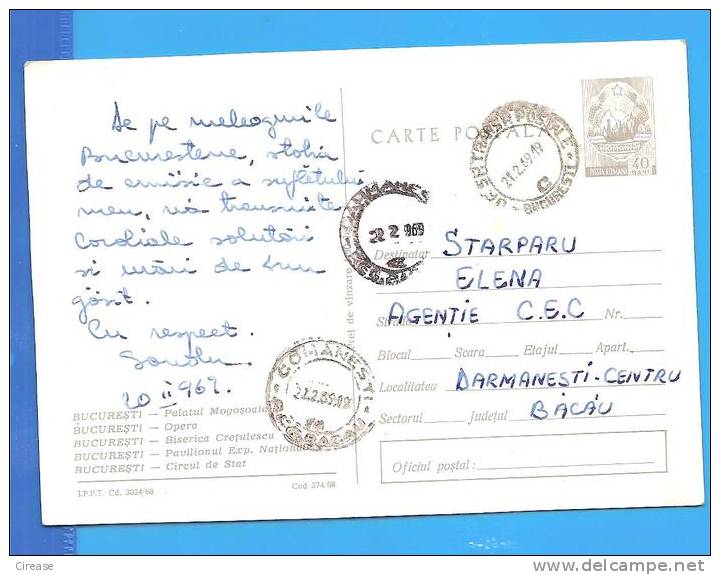 De pe meleagurile
Bucureștene, stația
de emisie a sufletului
meu, vă transmite
cordiale salutări
si urări de bun
găsit.
Cu respect.
20 II 1969.
BUCUREȘTI — Palatul Mogoșoaia
BUCUREȘTI — Opera
BUCUREȘTI — Biserica Crețulescu
BUCUREȘTI — Pavilionul Exp. Naționale
BUCUREȘTI — Circul de Stat
I.P.F.T. Cd. 3824/68
Cod 374/68
preț de vînzare
CARTE POȘTALĂ
POSTA ROMANA
40
BANI
21.2.69.19
C
BUCUREȘTI
DARMANEST
2 2 969
COMANESTI
21.2.69.19
BACAU
Destinatar STARPARU
ELENA
Strada AGENȚIE C.E.C Nr.
Blocul Scara Etajul Apart.
Localitatea DARMANEȘTI-CENTRU
Sectorul Județul BACĂU
Oficiul poștal:
Cirease
www.delcampe.net